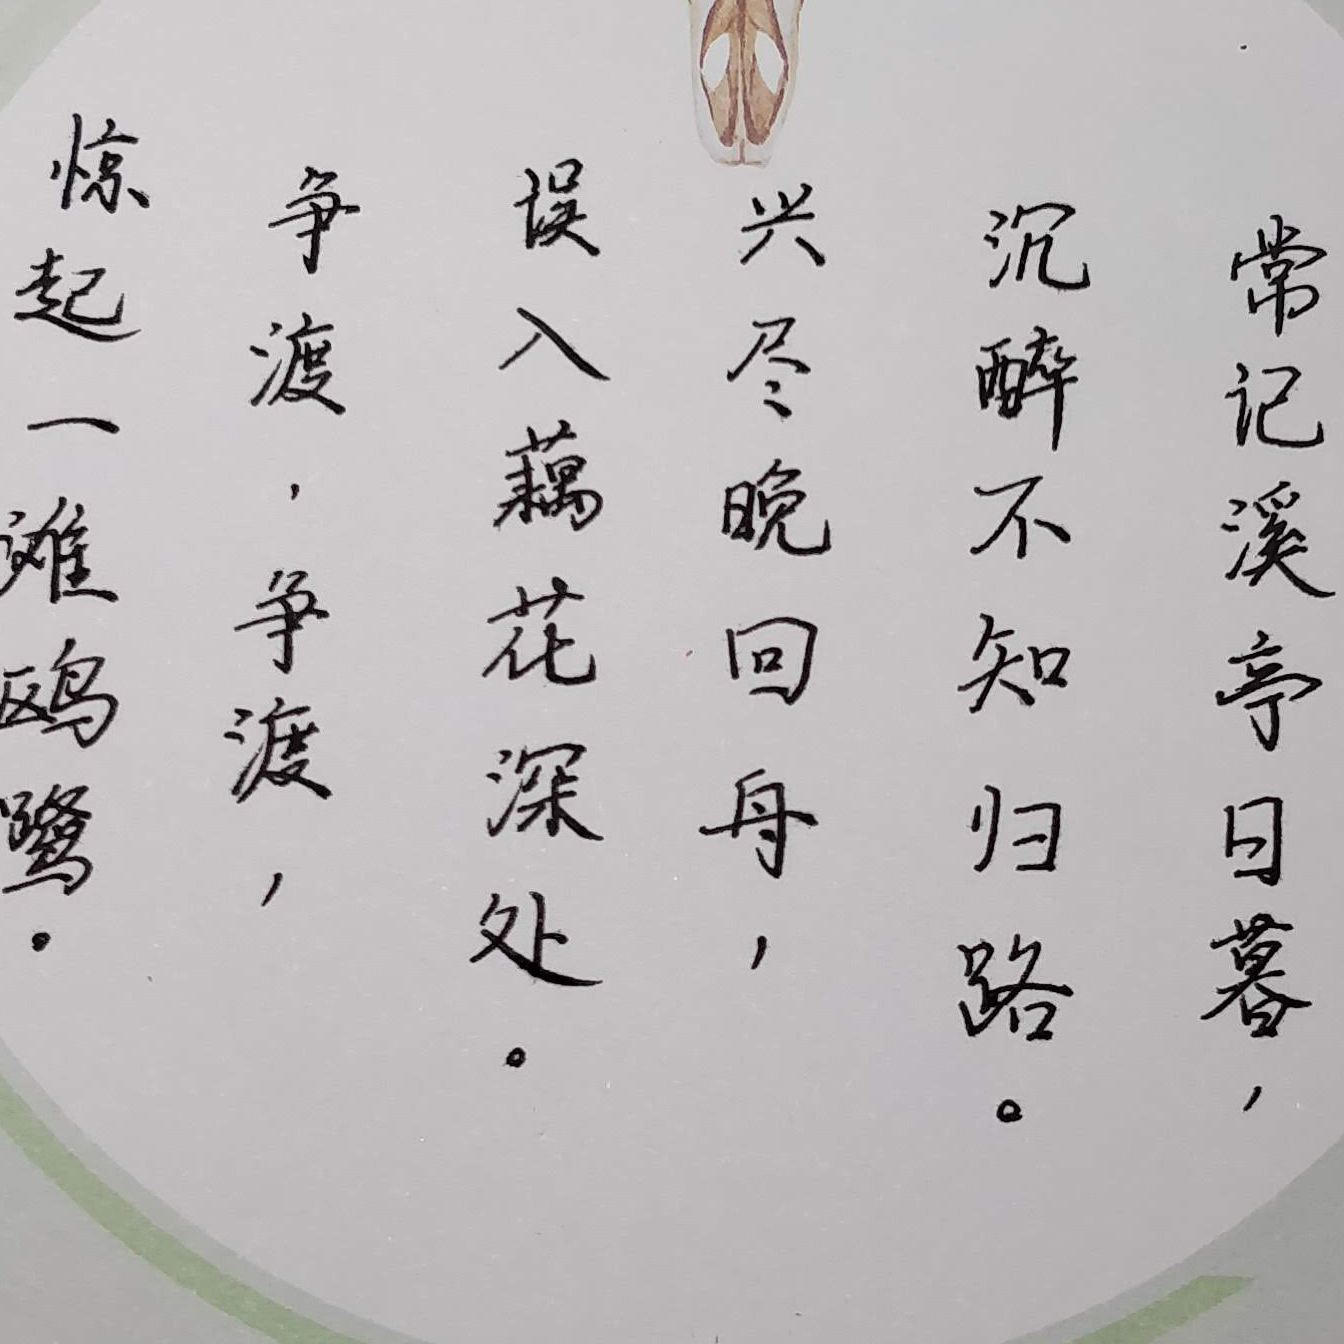 常记溪亭日暮，
沉醉不知归路。
兴尽晚回舟，
误入藕花深处。
争渡，争渡，
惊起一滩鸥鹭。